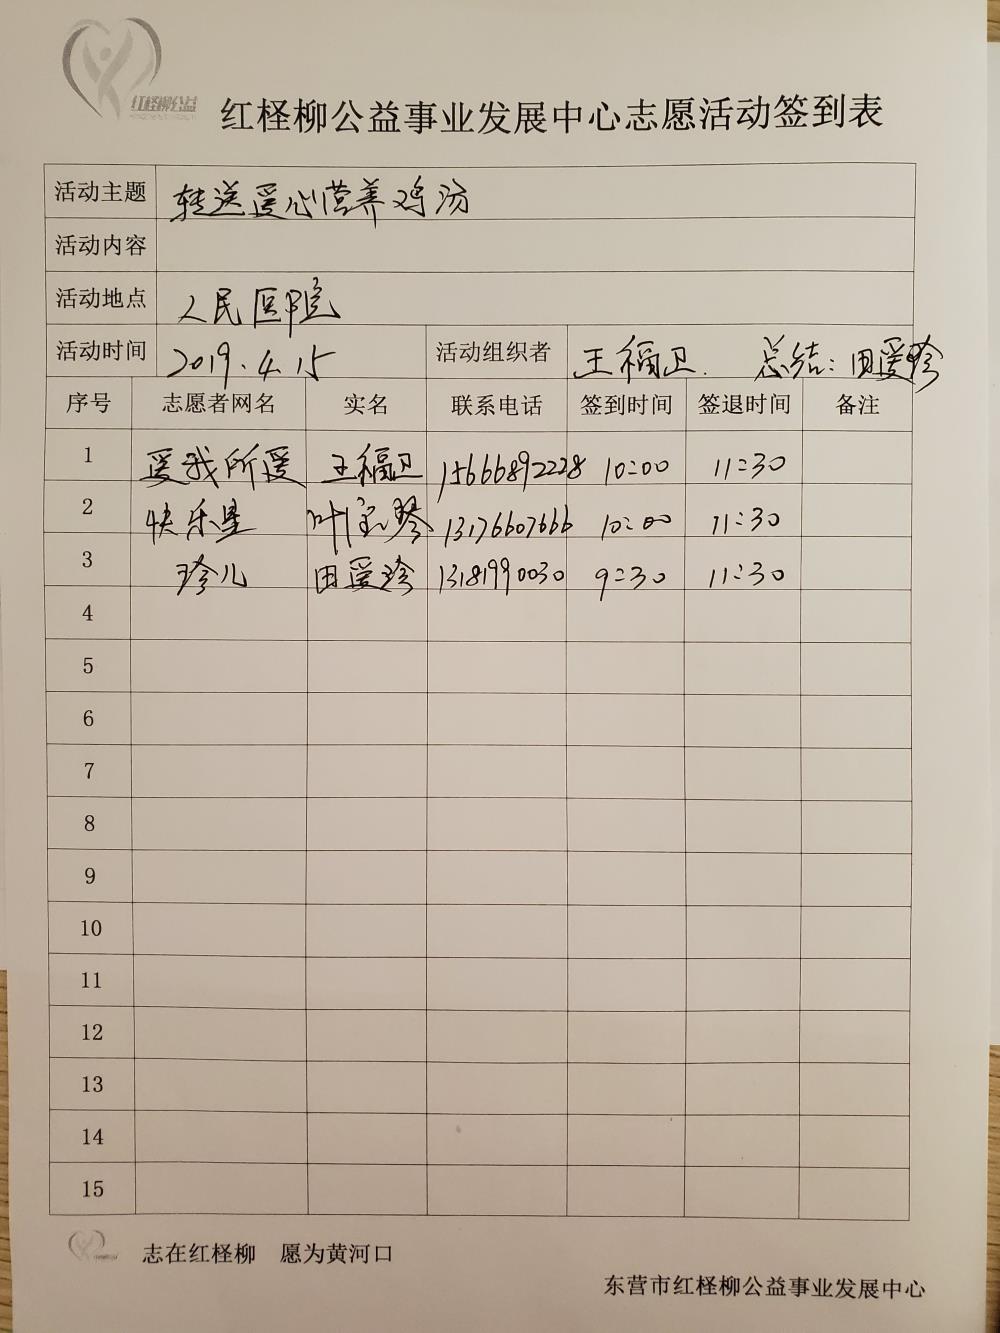 红柽柳公益
红柽柳公益事业发展中心志愿活动签到表
活动主题 转送爱心营养鸡汤
活动内容
活动地点 人民医院
活动时间 2019.4.15 活动组织者 王福卫. 总结:田爱珍
序号 志愿者网名 实名 联系电话 签到时间 签退时间 备注
1 爱我所爱 王福卫 15666892228 10:00 11:30
2 快乐星 叶宝琴 13176607666 10:00 11:30
3 珍儿 田爱珍 13181990030 9:30 11:30
4
5
6
7
8
9
10
11
12
13
14
15
志在红柽柳 愿为黄河口
东营市红柽柳公益事业发展中心